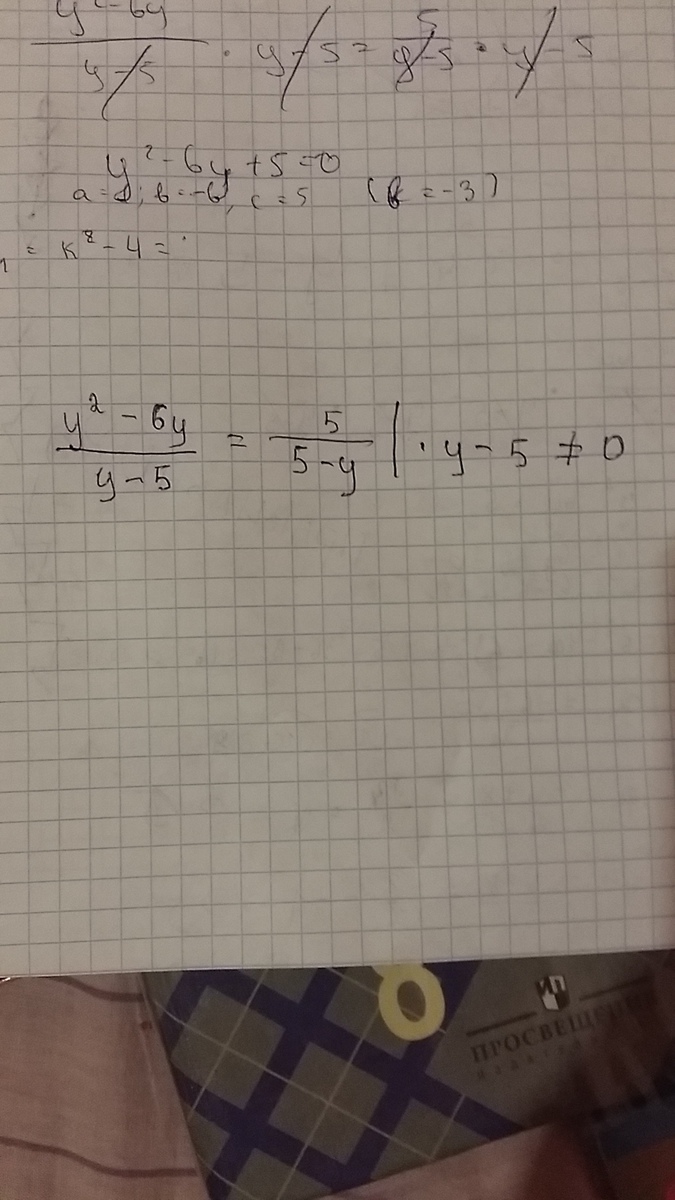 y² - 6y / y - 5 · y - 5 = 5 / y - 5 · y - 5
y² - 6y + 5 = 0
a = 1; b = -6, c = 5 (k = -3)
= k² - 4 =
y² - 6y / y - 5 = 5 / 5 - y | · y - 5 ≠ 0
8
ПРОСВЕЩЕНИЕ